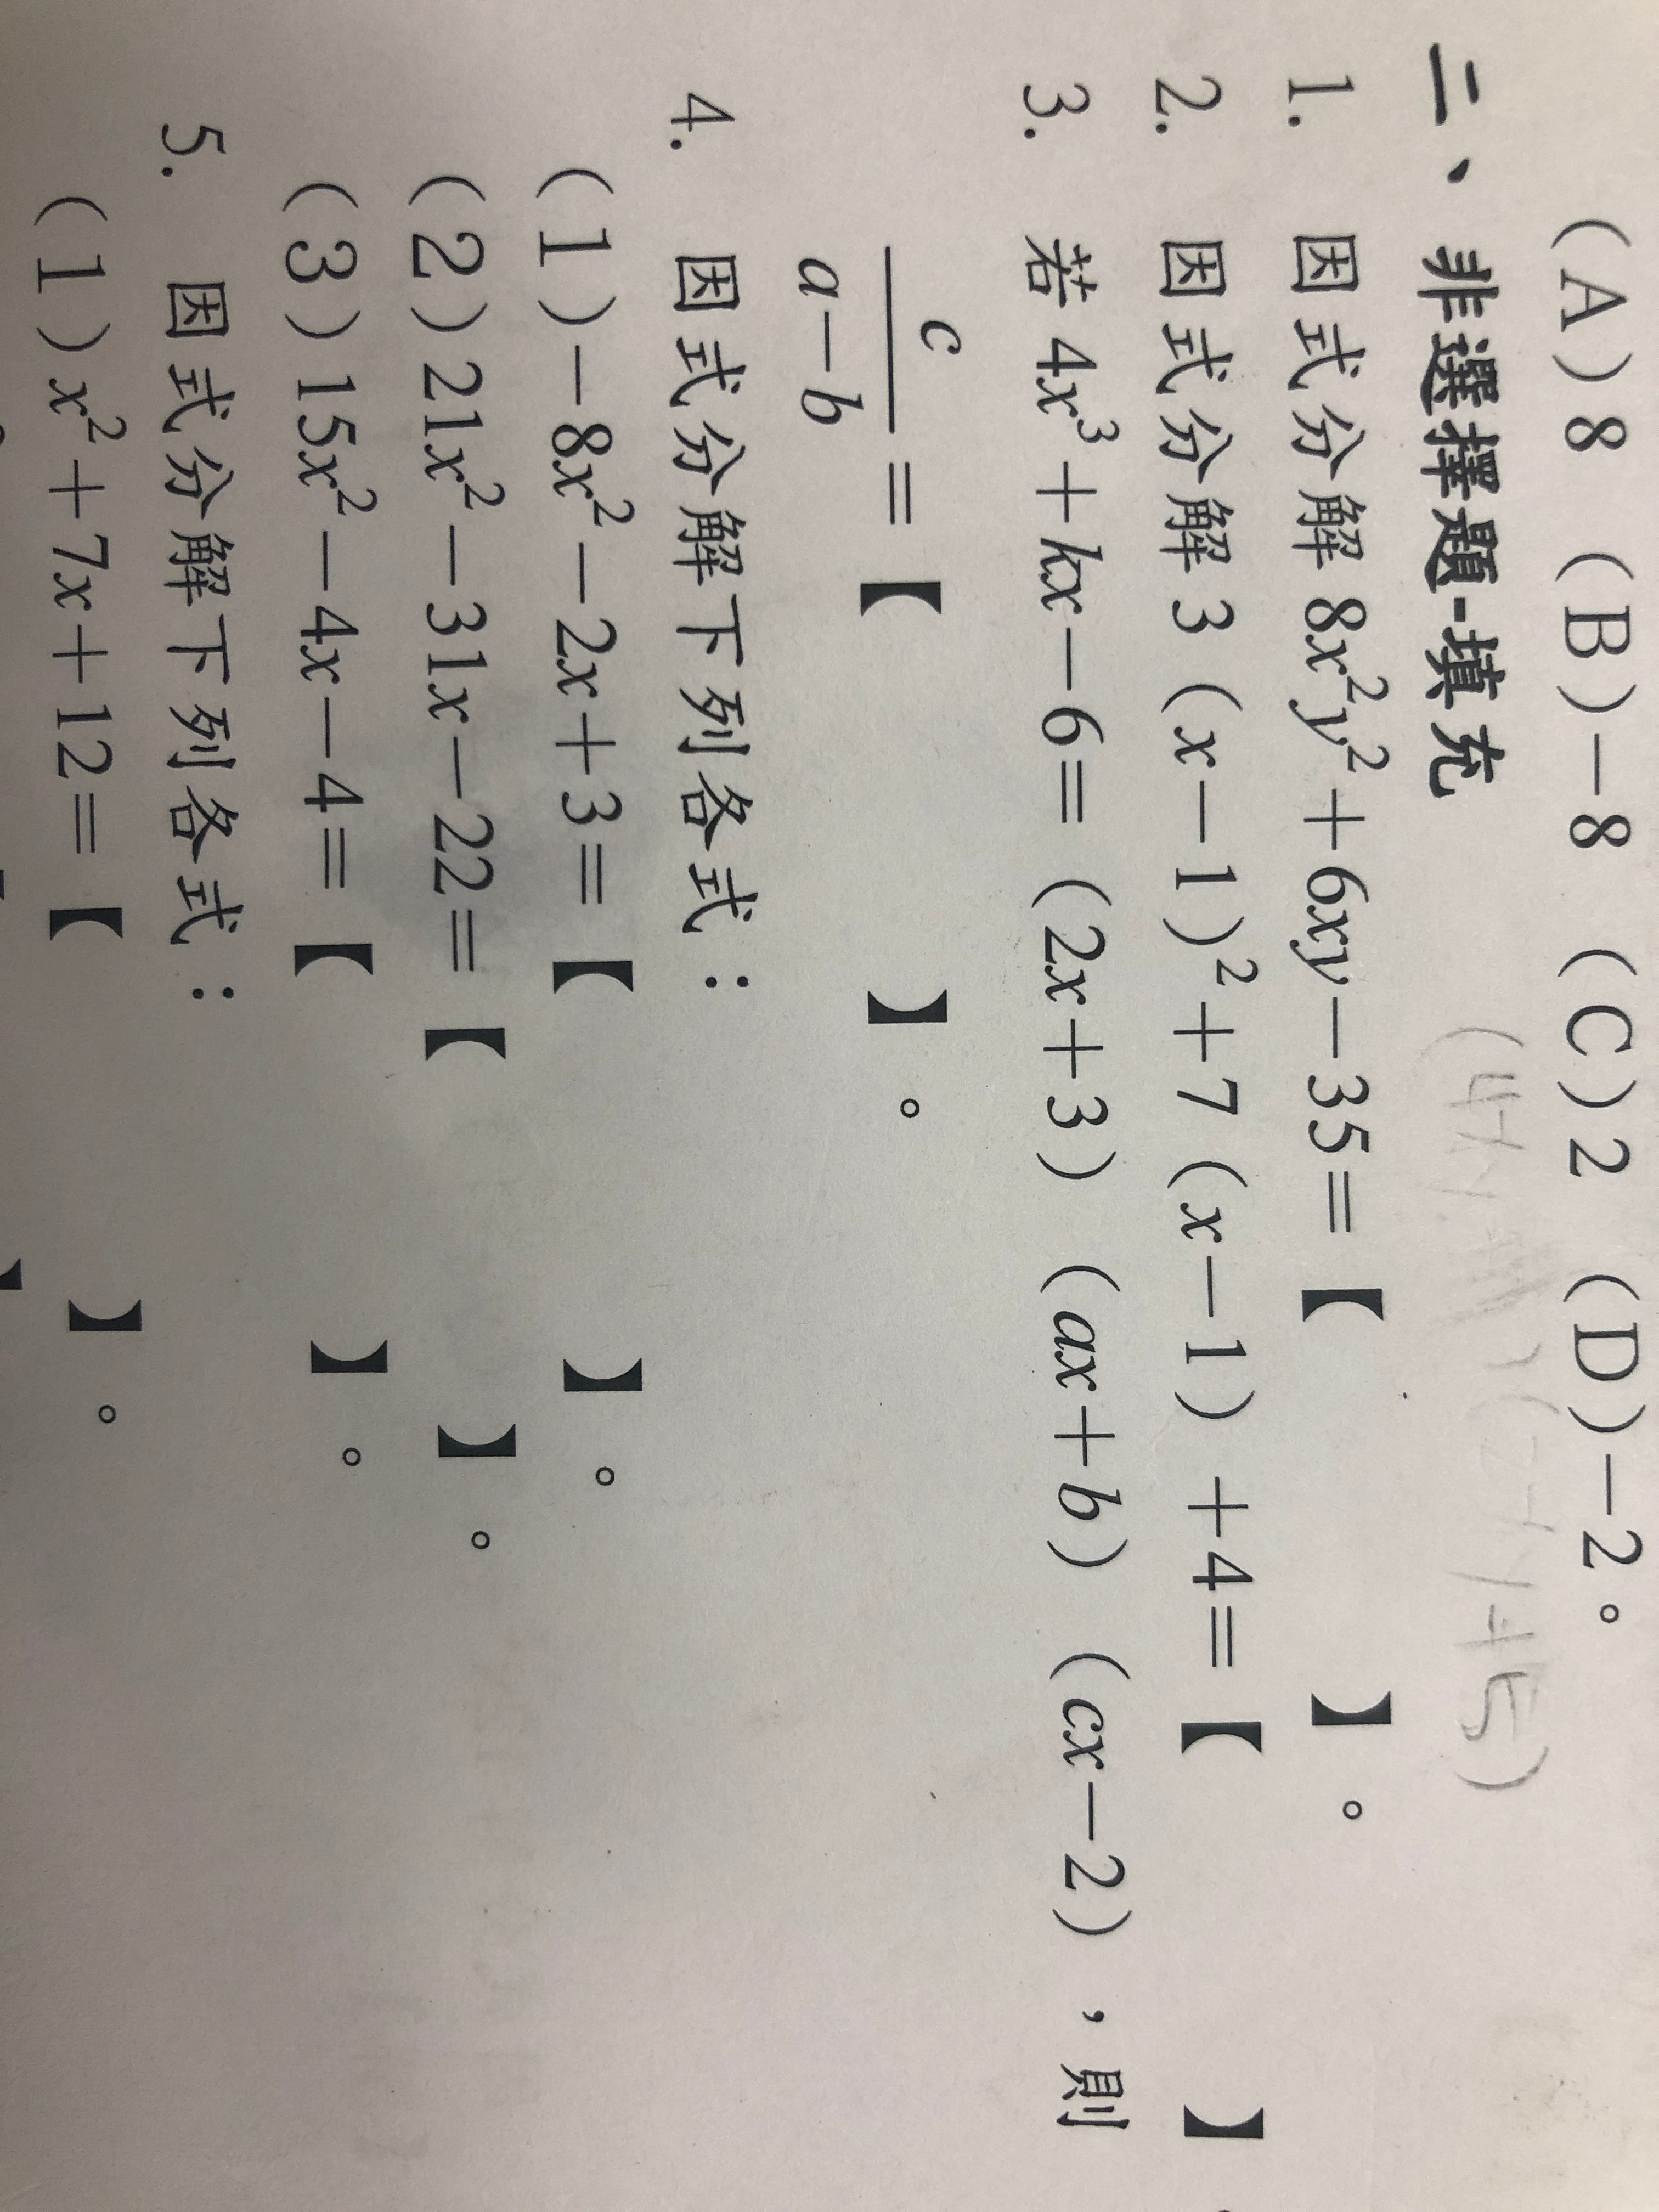 (A)8 (B)−8 (C)2 (D)−2。
二、非選擇題-填充
1. 因式分解 8x²y²+6xy−35=【 】。
2. 因式分解 3(x−1)²+7(x−1)+4=【 】
3. 若 4x³+kx−6=(2x+3)(ax+b)(cx−2),則
c/(a−b)=【 】。
4. 因式分解下列各式:
(1)−8x²−2x+3=【 】。
(2)21x²−31x−22=【 】。
(3)15x²−4x−4=【 】。
5. 因式分解下列各式:
(1)x²+7x+12=【 】。